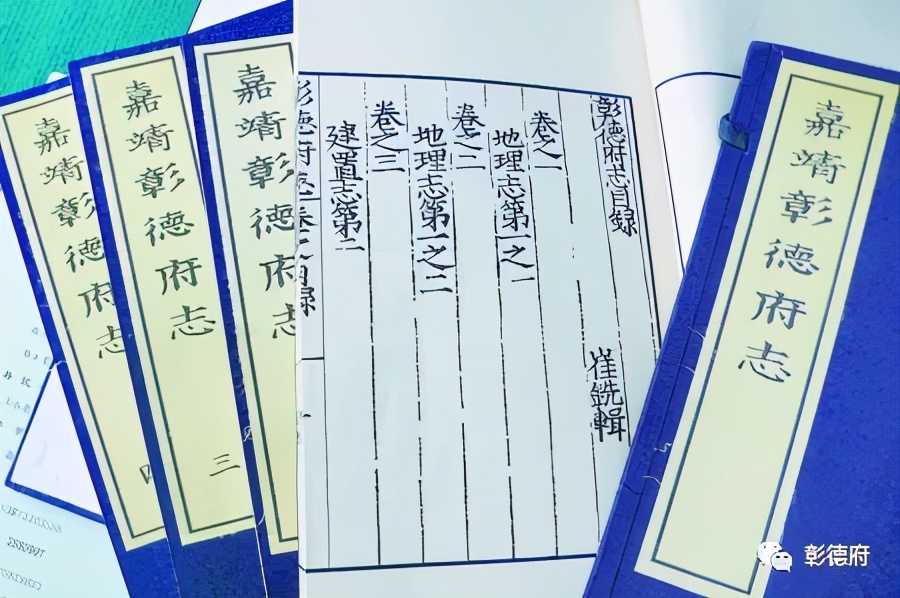 嘉靖彰德府志
嘉靖彰德府志
三
嘉靖彰德府志
彰德府志目録
崔銑輯
卷之一
地理志第一之一
卷之二
地理志第一之二
卷之三
建置志第二
嘉靖彰德府志
彰德府